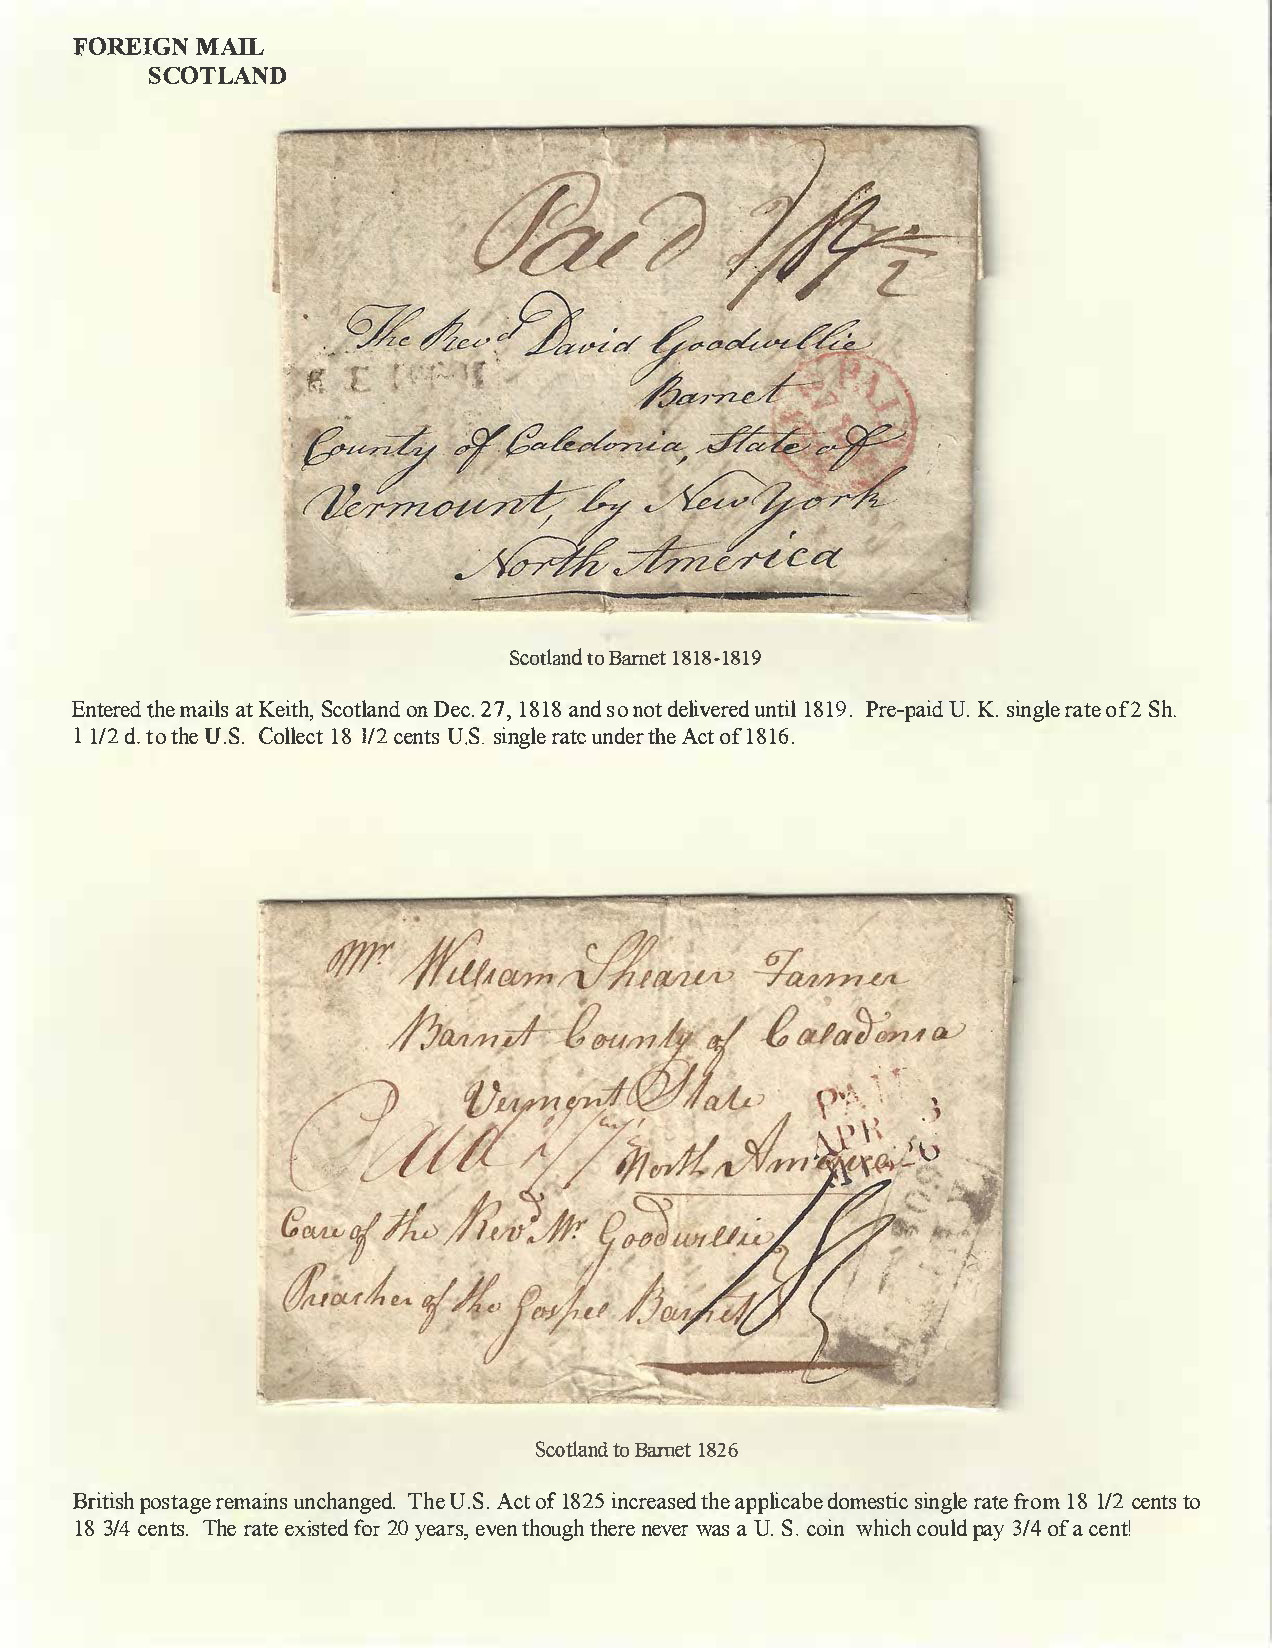 FOREIGN MAIL
SCOTLAND
Paid
2
The Revd David Goodwillie
Barnet
PAID
27
County of Caledonia, State of
Vermount, by New York
North America
Scotland to Barnet 1818-1819
Entered the mails at Keith, Scotland on Dec. 27, 1818 and so not delivered until 1819. Pre-paid U. K. single rate of 2 Sh.
1 1/2 d. to the U.S. Collect 18 1/2 cents U.S. single rate under the Act of 1816.
Mr. William Shearer Farmer
Barnet County of Caladonia
Vermont State
PAID
APR 3
Paid
North America
26
Care of the Revd Mr Goodwillie
Preacher of the Gospel Barnet
Scotland to Barnet 1826
British postage remains unchanged. The U.S. Act of 1825 increased the applicabe domestic single rate from 18 1/2 cents to
18 3/4 cents. The rate existed for 20 years, even though there never was a U. S. coin which could pay 3/4 of a cent!